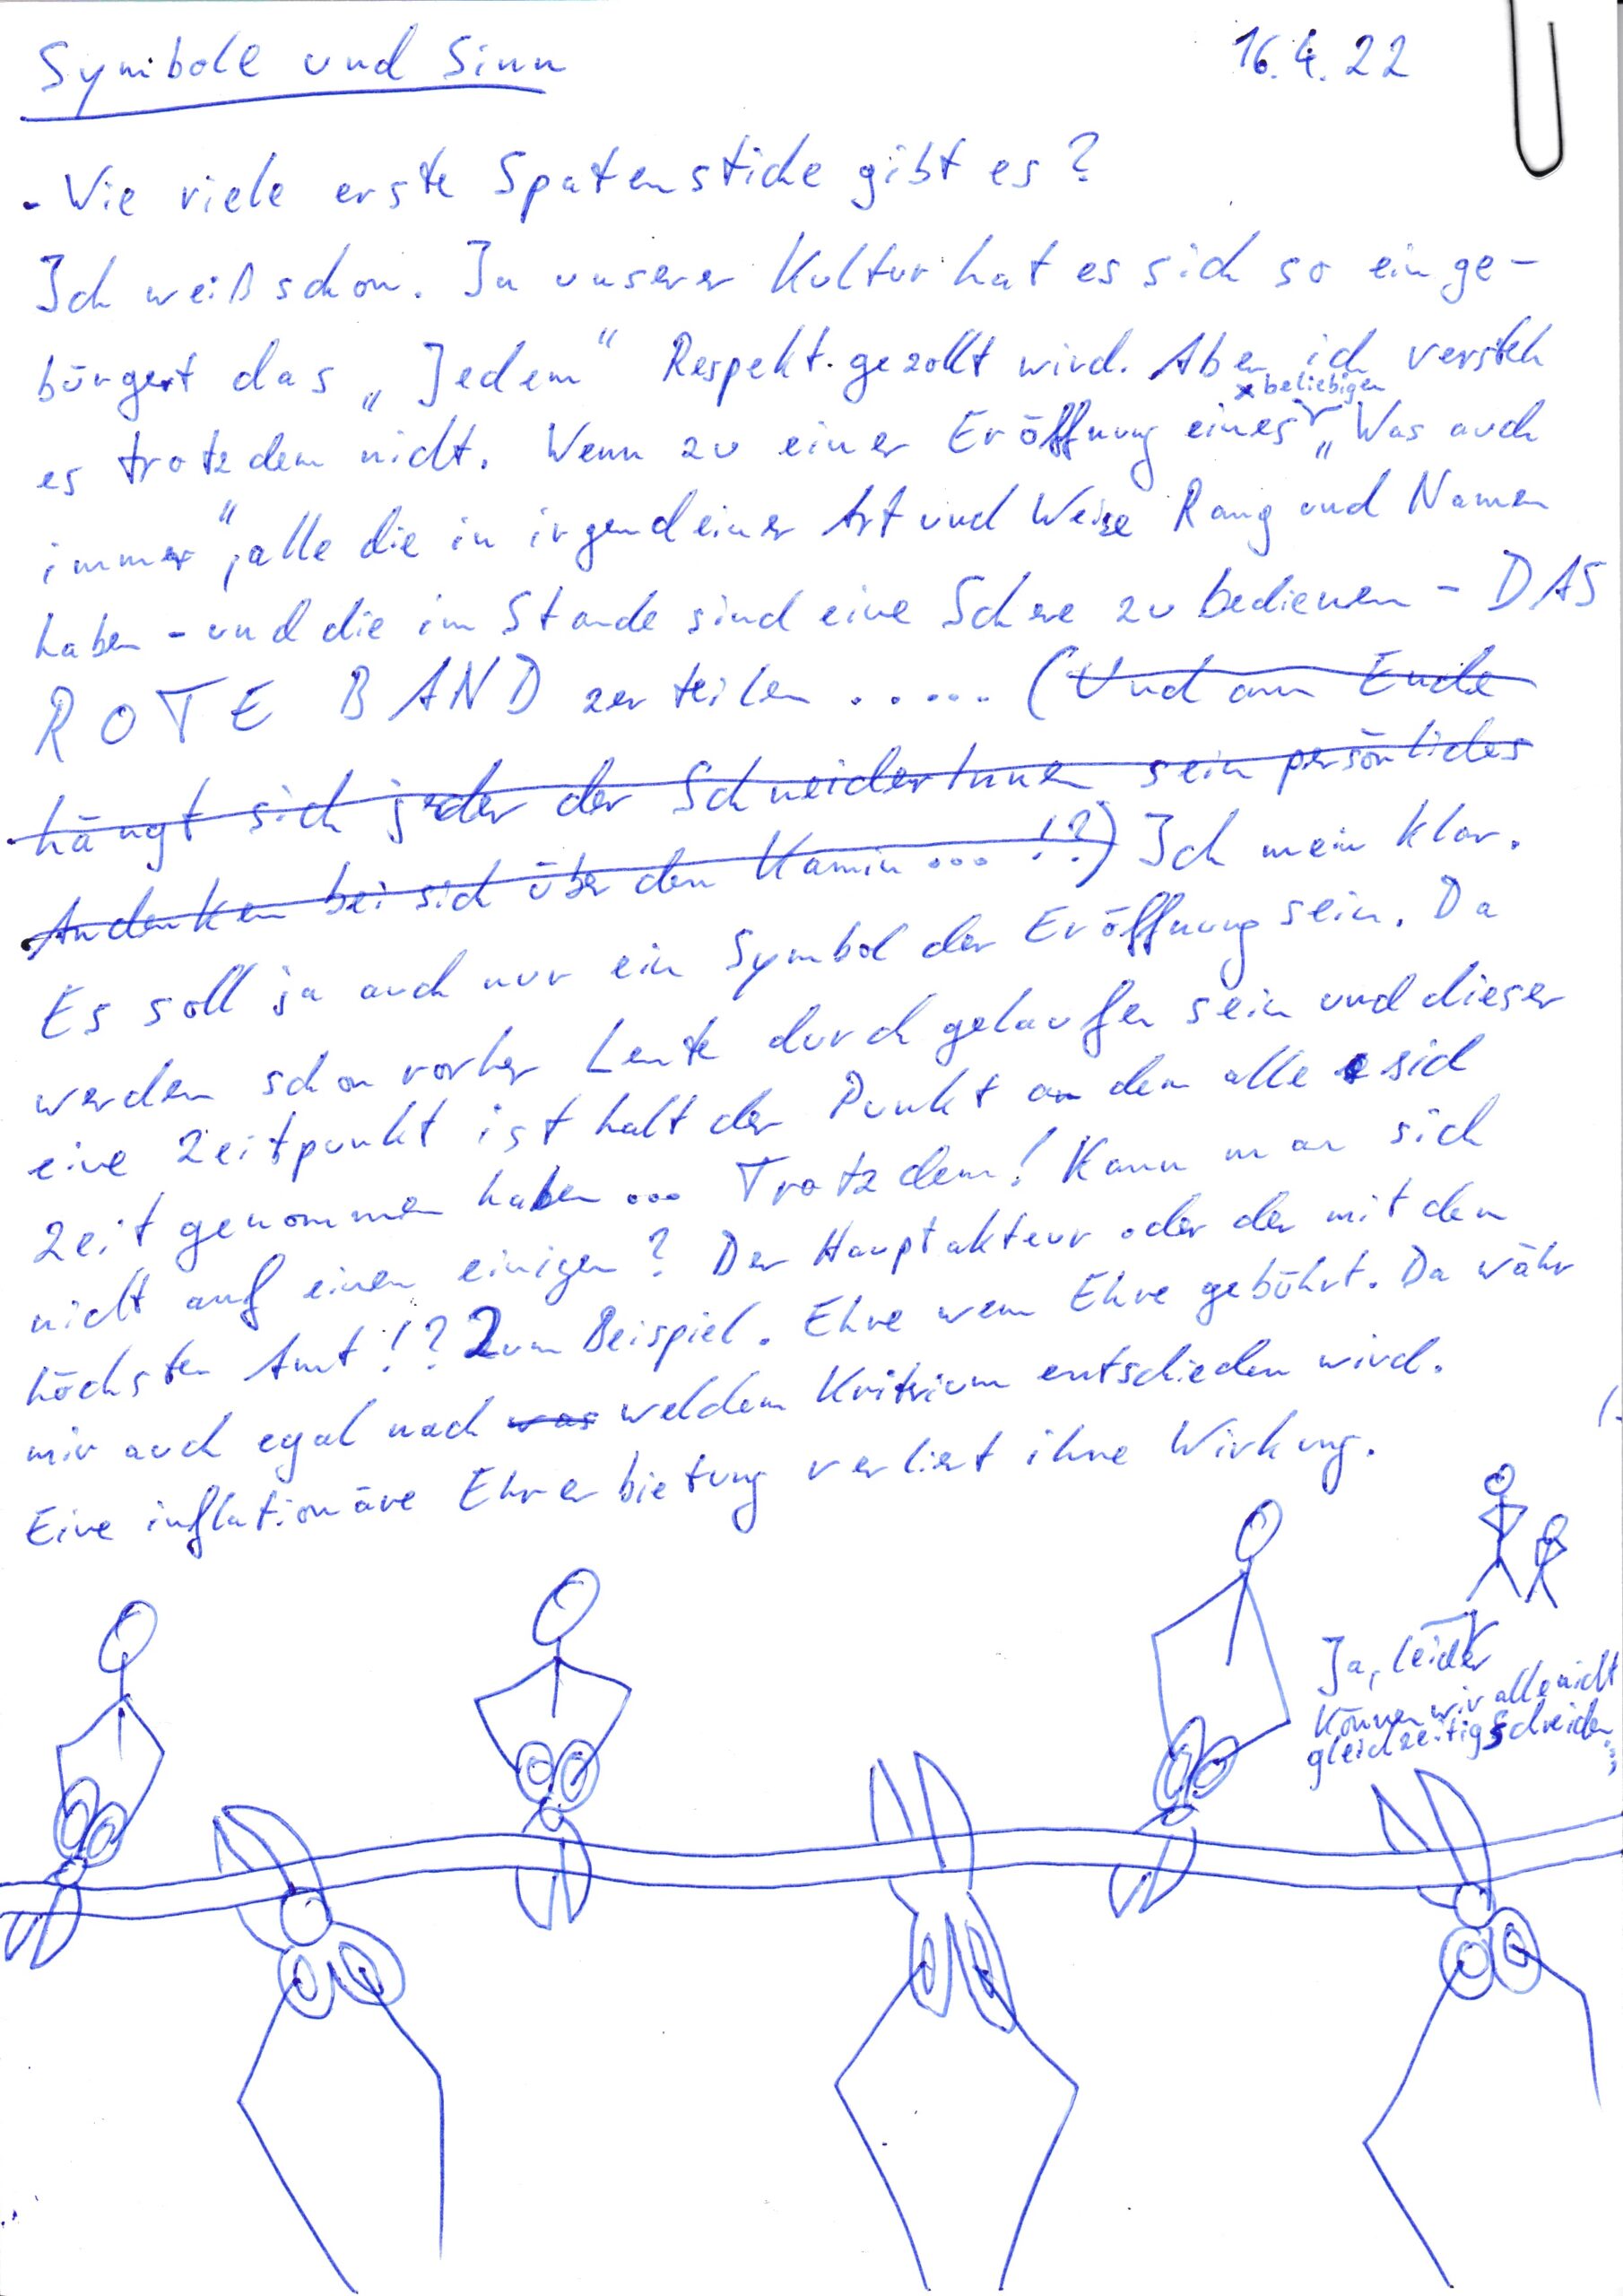 Symbole und Sinn
16.4.22
- Wie viele erste Spatenstiche gibt es?
Ich weiß schon. In unserer Kultur hat es sich so einge-
bürgert das „Jedem" Respekt gezollt wird. Aber ich versteh
es trotzdem nicht. Wenn zu einer Eröffnung eines beliebigen „Was auch
immer", alle die in irgendeiner Art und Weise Rang und Namen
haben - und die im Stande sind eine Schere zu bedienen - DAS
ROTE BAND zerteilen ..... (Und am Ende
hängt sich jeder der SchneiderInnen sein persönliches
Andenken bei sich über den Kamin ... !?) Ich mein klar.
Es soll ja auch nur ein Symbol der Eröffnung sein. Da
werden schon vorher Leute durch gelaufen sein und dieser
eine Zeitpunkt ist halt der Punkt an dem alle sich
Zeit genommen haben ... Trotzdem! Kann man sich
nicht auf einen einigen? Der Hauptakteur oder der mit dem
höchsten Amt!? Zum Beispiel. Ehre wem Ehre gebührt. Da währ
mir auch egal nach was welchem Kriterium entschieden wird.
Eine inflationäre Ehrerbietung verliert ihre Wirkung.
Ja, leider
können wir alle nicht
gleichzeitig schneiden...